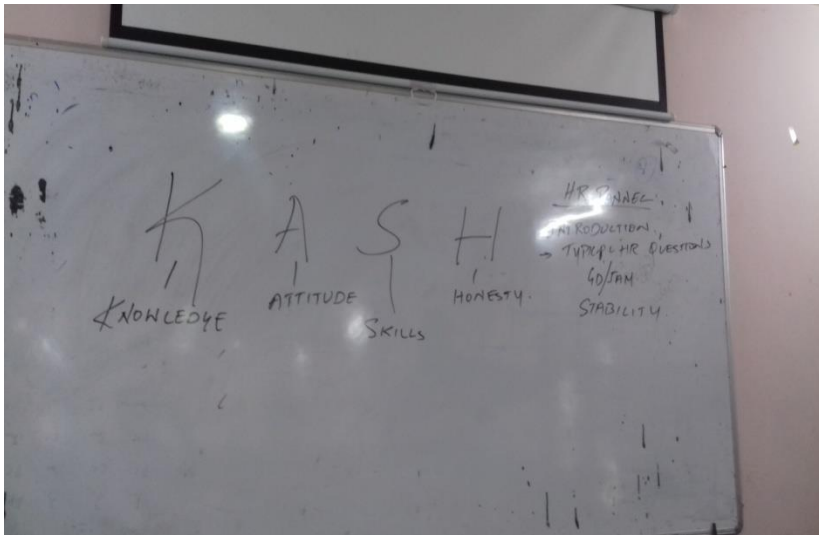 K A S H
KNOWLEDGE ATTITUDE SKILLS HONESTY.
HR PANNEL
INTRODUCTION,
→ TYPICAL HR QUESTIONS
GD/JAM
STABILITY